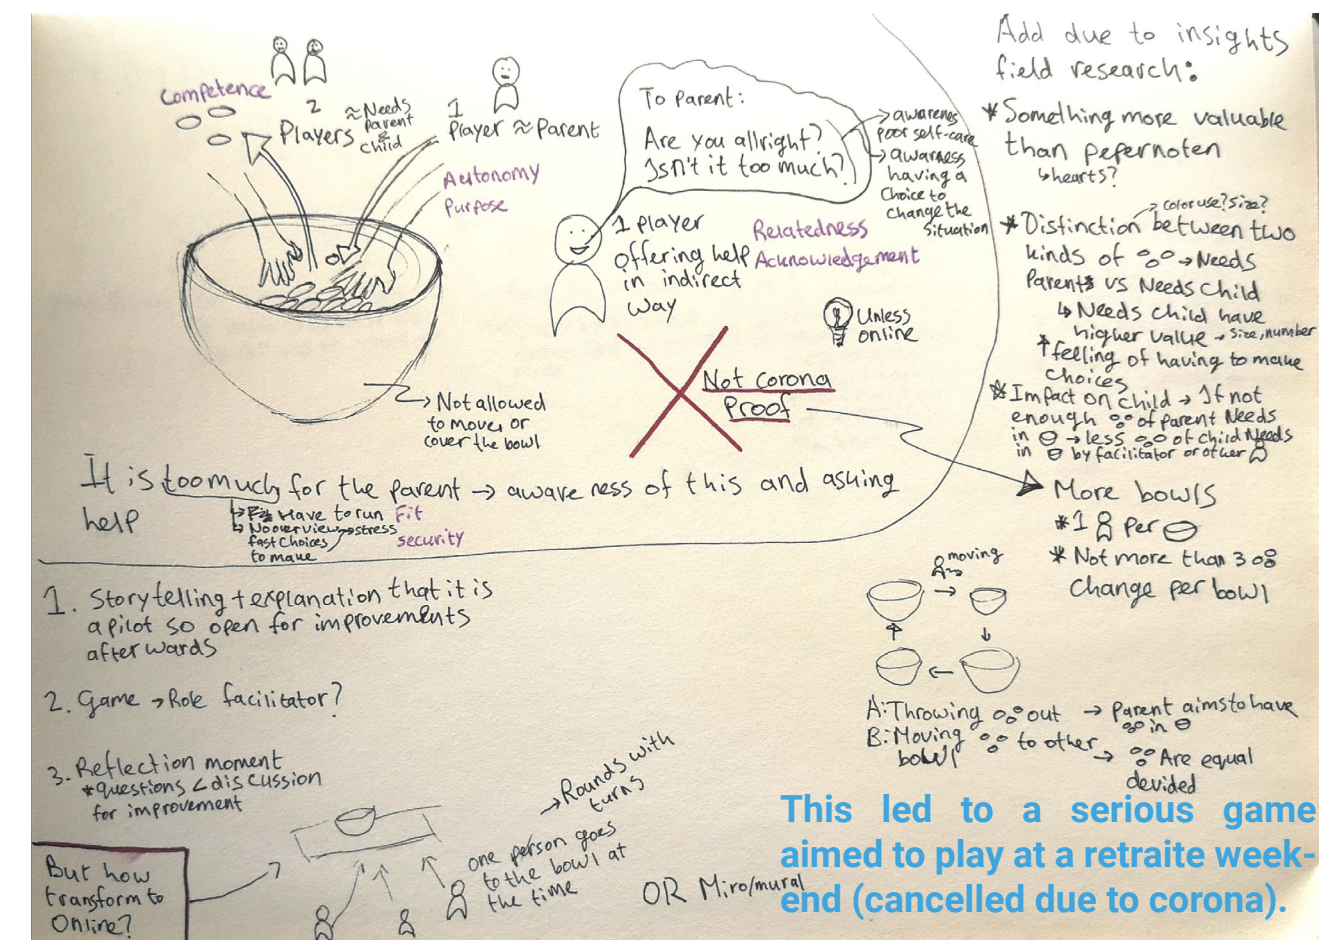 Competence
2
Players
≈Needs
Parent
&
child
1
Player ≈ Parent
Autonomy
Purpose
To Parent:
Are you allright?
Isn't it too much?
→ awarenes
poor self-care
→ awarness
having a
choice to
change the
situation
1 player
offering help
in indirect
way
Relatedness
Acknowledgement
Unless
online
Not corona
Proof
Not allowed
to mover or
cover the bowl
It is too much for the parent → awareness of this and asking
help
Have to run
No overview → stress
fast choices
to make
Fit
security
Add due to insights
field research:
* Something more valuable
than pepernoten
↳ hearts?
→ color use? size?
* Distinction between two
kinds of → Needs
Parents vs Needs Child
↳ Needs child have
higher value → size, number
↑ feeling of having to make
choices
* Impact on child → If not
enough of parent Needs
in → less of child Needs
in by facilitator or other
More bowls
* 1 per
* Not more than 3
change per bowl
moving
A: Throwing out → Parent aims to have
in
B: Moving to other
bowl
→ Are equal
devided
1. Storytelling + explanation that it is
a pilot so open for improvements
afterwards
2. Game → Role facilitator?
3. Reflection moment
* questions < discussion
for improvement
→ Rounds with
turns
one person goes
to the bowl at
the time
But how
transform to
Online?
OR Miro/mural
This led to a serious game
aimed to play at a retraite week-
end (cancelled due to corona).